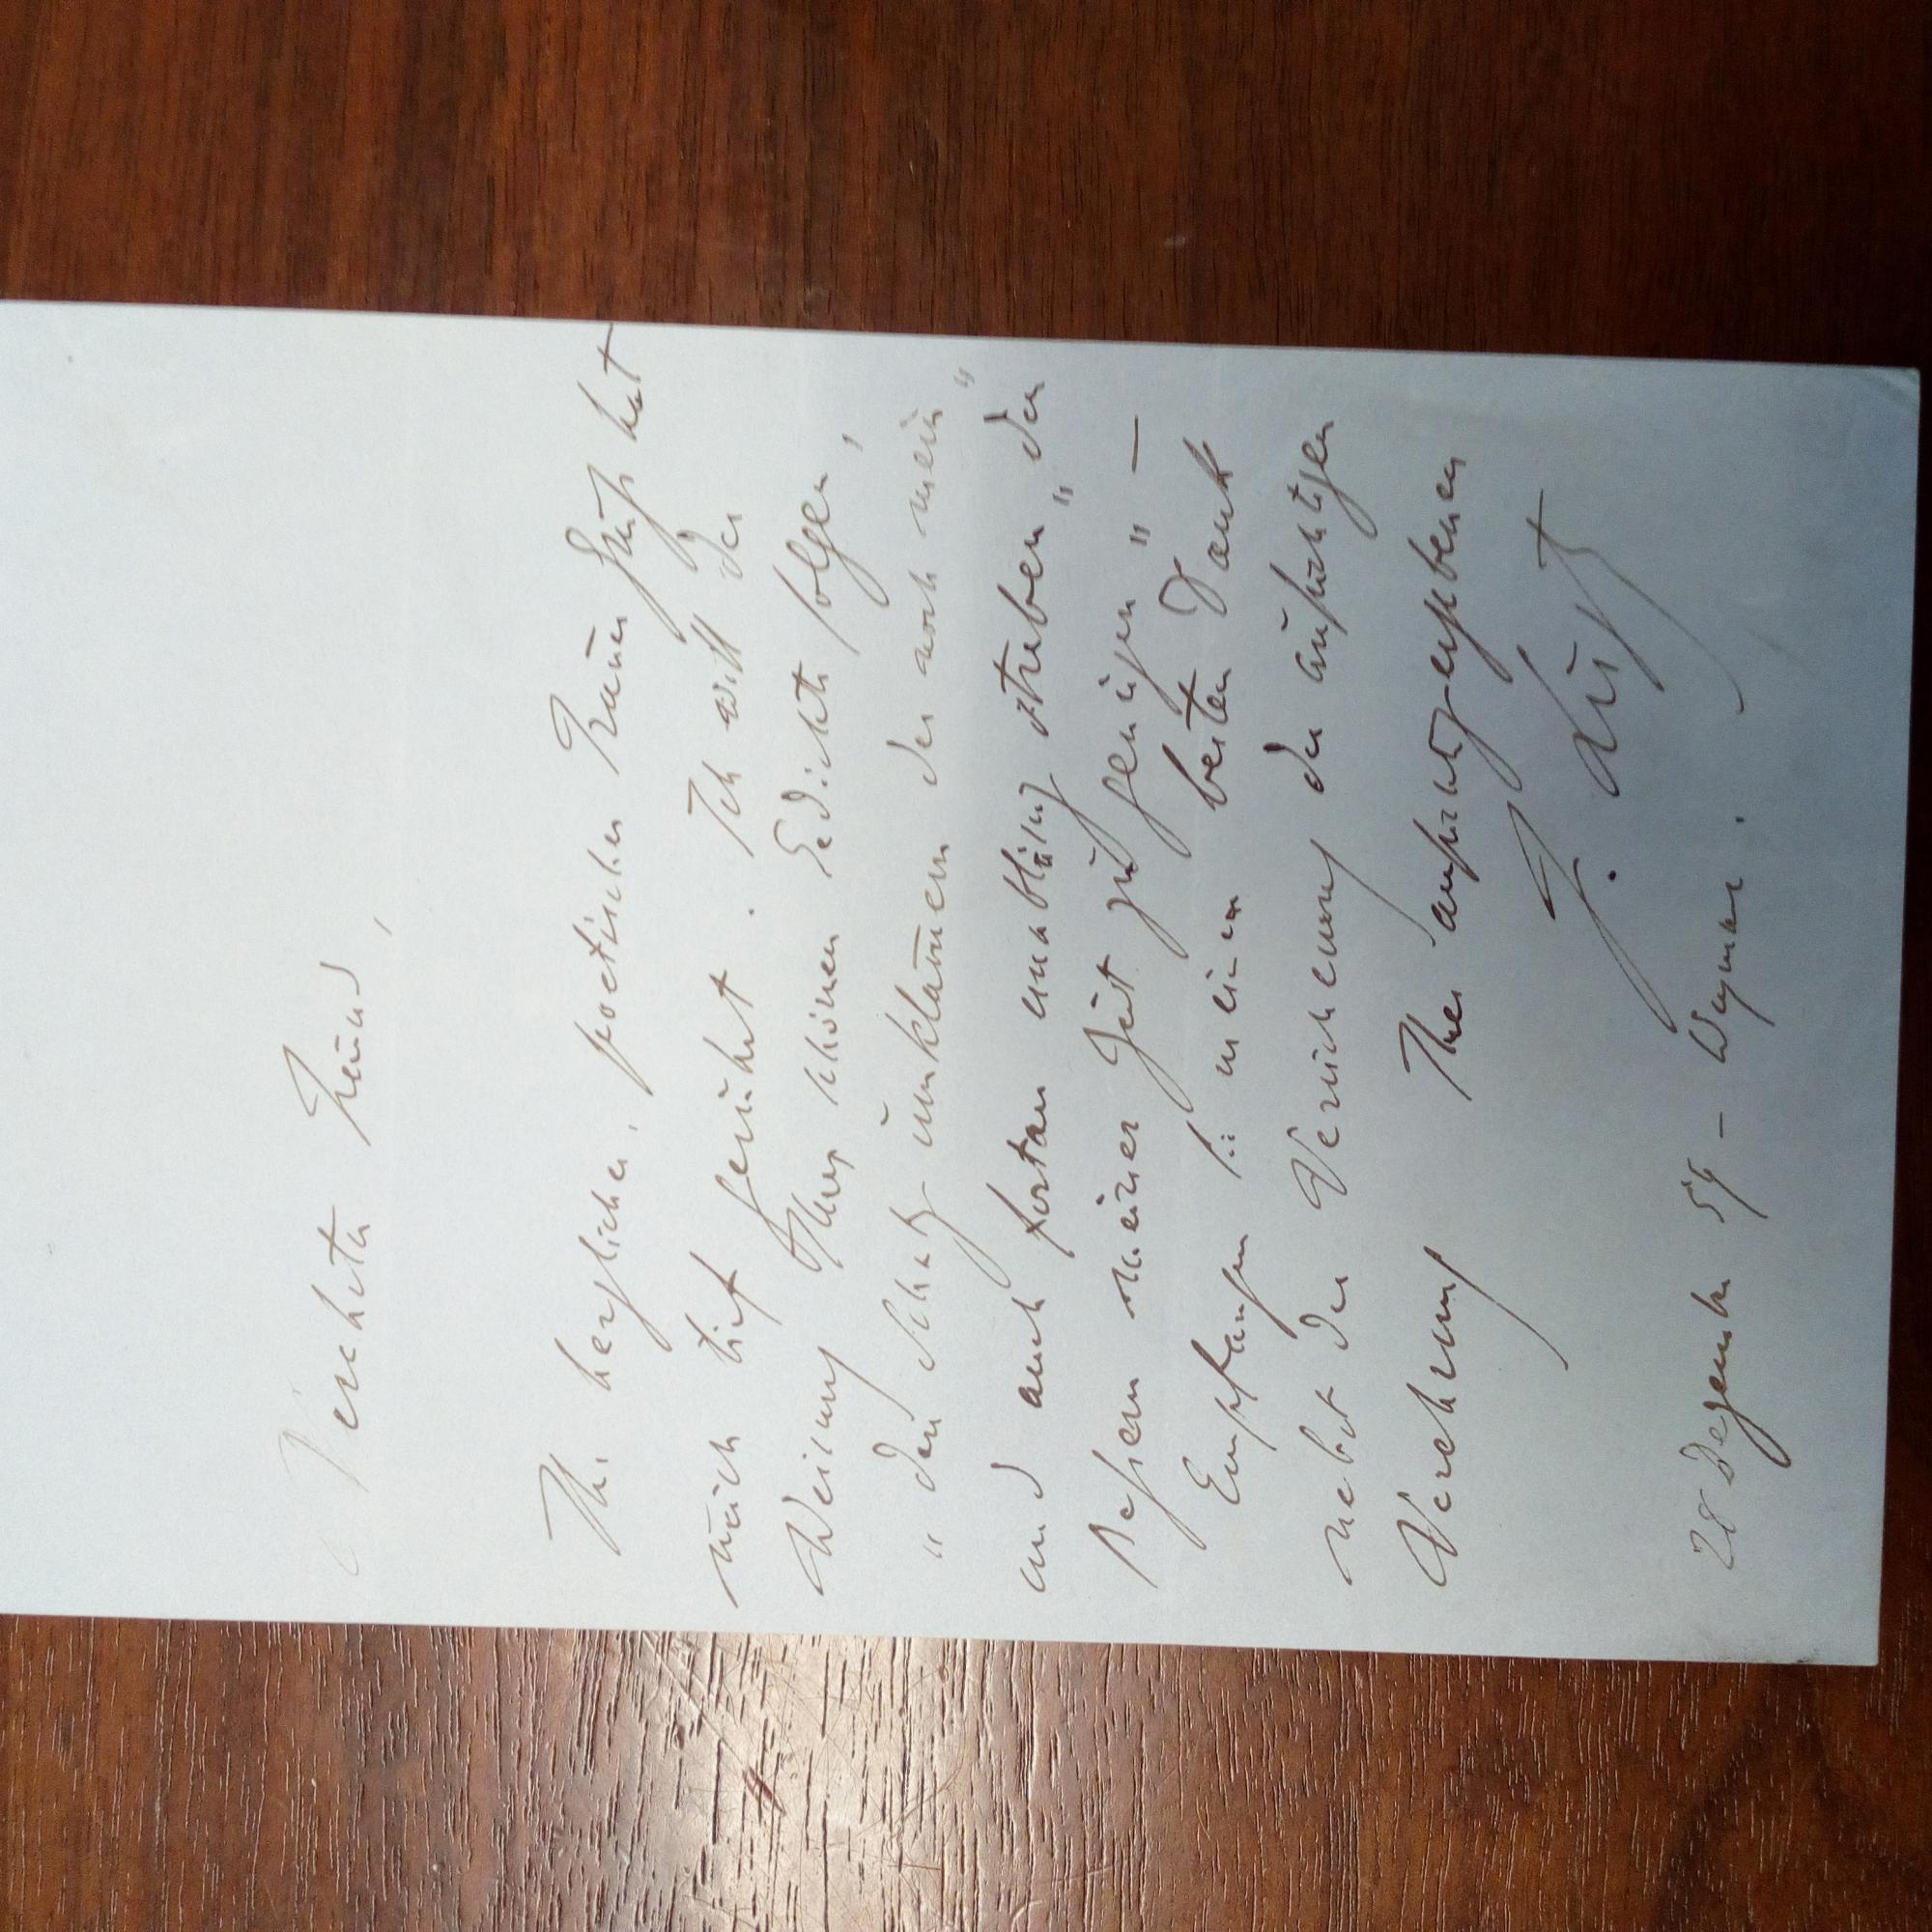 Verehrter Freund,
Ihr herzlicher, poetischer Freund Gruß hat
mich tief gerührt. Ich will der
Weisung Ihres schönen Gedichts folgen,
"den Schatz umklamern der noch mein"
und auch fortan unabläßig streben, "den
Besten meiner Zeit zu genügen" —
Empfangen Sie meinen besten Dank
nebst der Versicherung der aufrichtigen
Verehrung Ihres aufrichtig ergebenen
F. Liszt
28 Dezember 54 – Weymar.